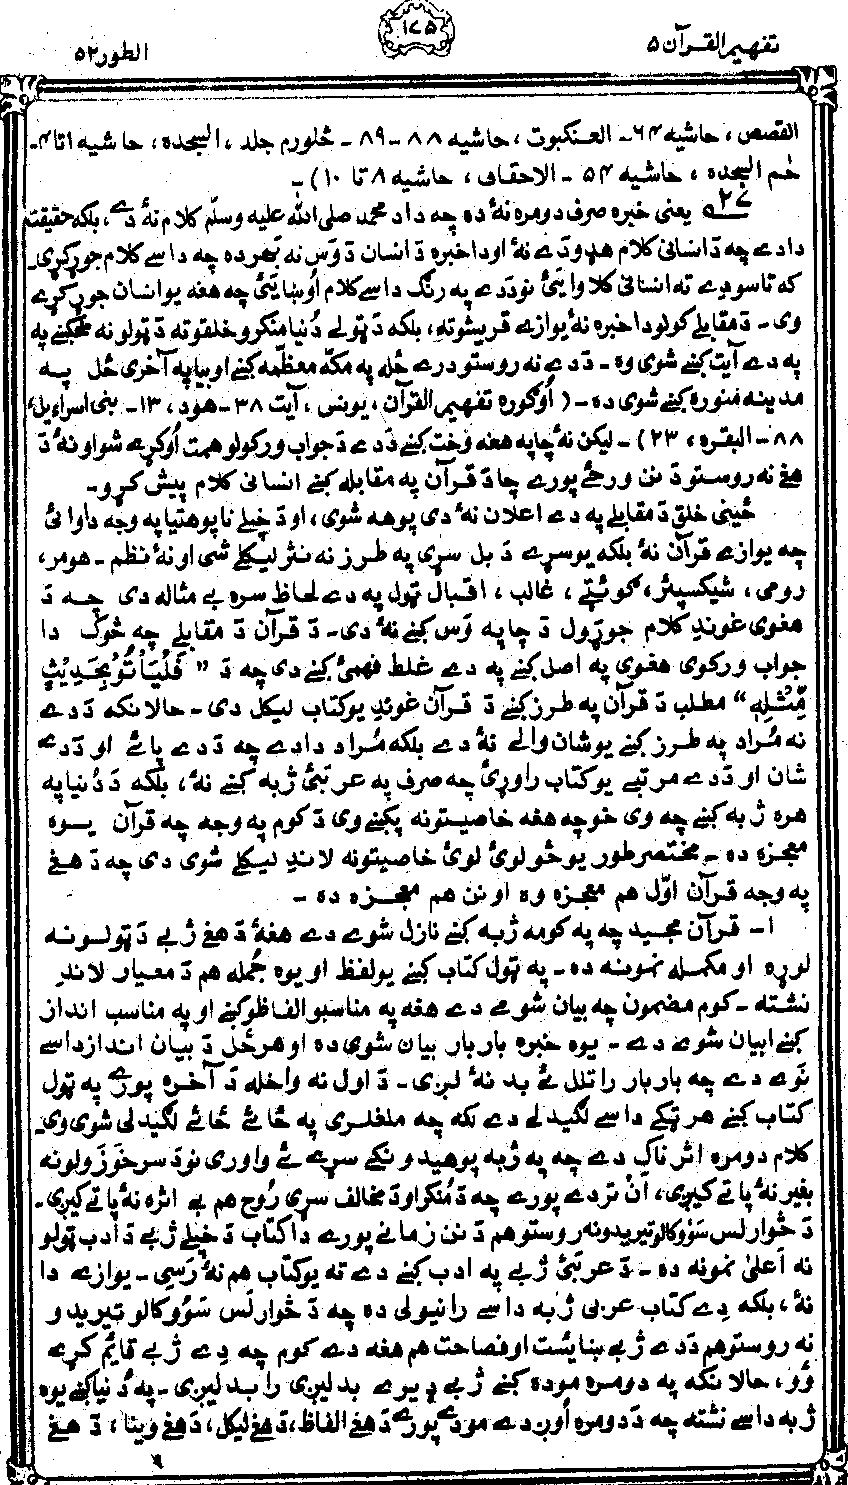 تفهیم القرآن ۵
۱۷۵
الطور ۵۲
القصص، حاشیه ۶۴- العنکبوت، حاشیه ۸۸-۸۹- څلورم جلد، السجده، حاشیه ۱ تا ۴-
حٰم السجده، حاشیه ۵۴- الاحقاف، حاشیه ۸ تا ۱۰)-
۲۷ یعنی خبره صرف دومره نۀ ده چه دا د محمد صلی الله علیه وسلّم کلام نۀ دے، بلکه حقیقت
دا دے چه دَ انسانی کلام هډو دے نۀ او دا خبره دَ انسان دَ وَس نه بهر ده چه داسے کلام جوړ کړی
که تاسو دے ته انسانی کلام وایئ نو دَ دے په رنګ داسے کلام اُوښایئ چه هغه یو انسان جوړ کړے
وی- دَ مقابلے کولو دا خبره نۀ یوازے قریشو ته، بلکه دَ ټولے دُنیا منکرو خلقو ته دَ ټولو نه مخکښے په
په دے آیت کښے شوی وه- دَ دے نه روستو درے ځله په مکّه معظّمه کښے او بیا په آخری ځل په
مدینه منوره کښے شوی ده-( اُوګوره تفهیم القرآن، یونس، آیت ۳۸- هود، ۱۳- بنی اسراءیل،
۸۸- البقره، ۲۳)- لیکن نۀ چا په هغه وخت کښے دَ دے دَ جواب ورکولو همت اُوکړے شو او نۀ دَ
هغے نه روستو دَ نن ورځے پورے چا دَ قرآن په مقابله کښے انسانی کلام پیش کړو-
ځینی خلق دَ مقابلے په دے اعلان نۀ دی پوهه شوی، او دَ خپلے ناپوهتیا په وجه دا وائی
چه یوازے قرآن نۀ بلکه یو سړے دَ بل سړی په طرز نه نثر لیکلے شی او نۀ نظم- هومر،
رومی، شیکسپئر، ګوئټے، غالب، اقبال ټول په دے لحاظ سره بے مثاله دی چه دَ
هغوی غوندِ کلام جوړول دَ چا په وَس کښے نۀ دی- دَ قرآن دَ مقابلے چه څوک دا
جواب ورکوی هغوی په اصل کښے په دے غلط فهمئ کښے دی چه دَ ” فَلْيَأْتُوْا بِحَدِيْثٍ
مِّثْلِهٖ“ مطلب دَ قرآن په طرز کښے دَ قرآن غوندِ یو کتاب لیکل دی- حالانکه دَ دے
نه مُراد په طرز کښے یو شان والے نۀ دے بلکه مُراد دا دے چه دَ دے پائے او دَ دے
شان او دَ دے مرتبے یو کتاب راوړئ چه صرف په عربئ ژبه کښے نۀ، بلکه دَ دُنیا په
هره ژبه کښے چه وی خو چه هغه خاصیتونه پکښے وی دَ کوم په وجه چه قرآن یوه
معجزه ده- مختصر طور یو څو لوئ لوئ خاصیتونه لاندِ لیکلے شوی دی چه دَ هغے
په وجه قرآن اوّل هم معجزه وه او نن هم معجزه ده-
۱- قرآن مجید چه په کومه ژبه کښے نازل شوے دے هغۀ دَ هغے ژبے دَ ټولونه
لوړه او مکمله نمونه ده- په ټول کتاب کښے یو لفظ او یوه جُمله هم دَ معیار لاندِ
نشته- کوم مضمون چه بیان شوے دے هغه په مناسبو الفاظو کښے او په مناسب انداز
کښے بیان شوے دے- یوه خبره بار بار بیان شوی ده او هر ځل دَ بیان انداز داسے
نَوے دے چه بار بار راتلل ئے بد نۀ لږی- دَ اول نه واخله دَ آخره پورے په ټول
کتاب کښے هر ټکے داسے لګیدلے دے لکه چه ملغلری په ځائے ځائے لګیدلی شوی وی-
کلام دومره اثرناک دے چه په ژبه پوهیدونکے سړے ئے واوری نو دَ سر خوزَولو نه
بغیر نۀ پاتے کیږی، اَن تر دے پورے چه دَ مُنکر او دَ مخالف سړی رُوح هم بے اثره نۀ پاتے کیږی-
دَ څوارلس سَوؤ کالو تیریدو نه روستو هم دَ نن زمانے پورے دا کتاب دَ خپلے ژبے دَ ادب ټولو
نه اَعلیٰ نمونه ده- دَ عربئ ژبے په ادب کښے دے ته یو کتاب هم نۀ رَسی- یوازے دا
نۀ، بلکه دِے کتاب عربی ژبه داسے رانیولی ده چه دَ څوارلَس سَوؤ کالو تیریدو
نه روستو هم دَ دے ژبے ښائست او فصاحت هم هغه دے کوم چه دِے ژبے قایم کړے
وُو، حالانکه په دومره موده کښے ژبے ډیرے بدلیږی را بدلیږی- په دُنیا کښے یوه
ژبه داسے نشته چه دَ دومره اُوږدے مودے پورے دَ هغے الفاظ، دَ هغے لیکل، دَ هغے وینا، دَ هغے